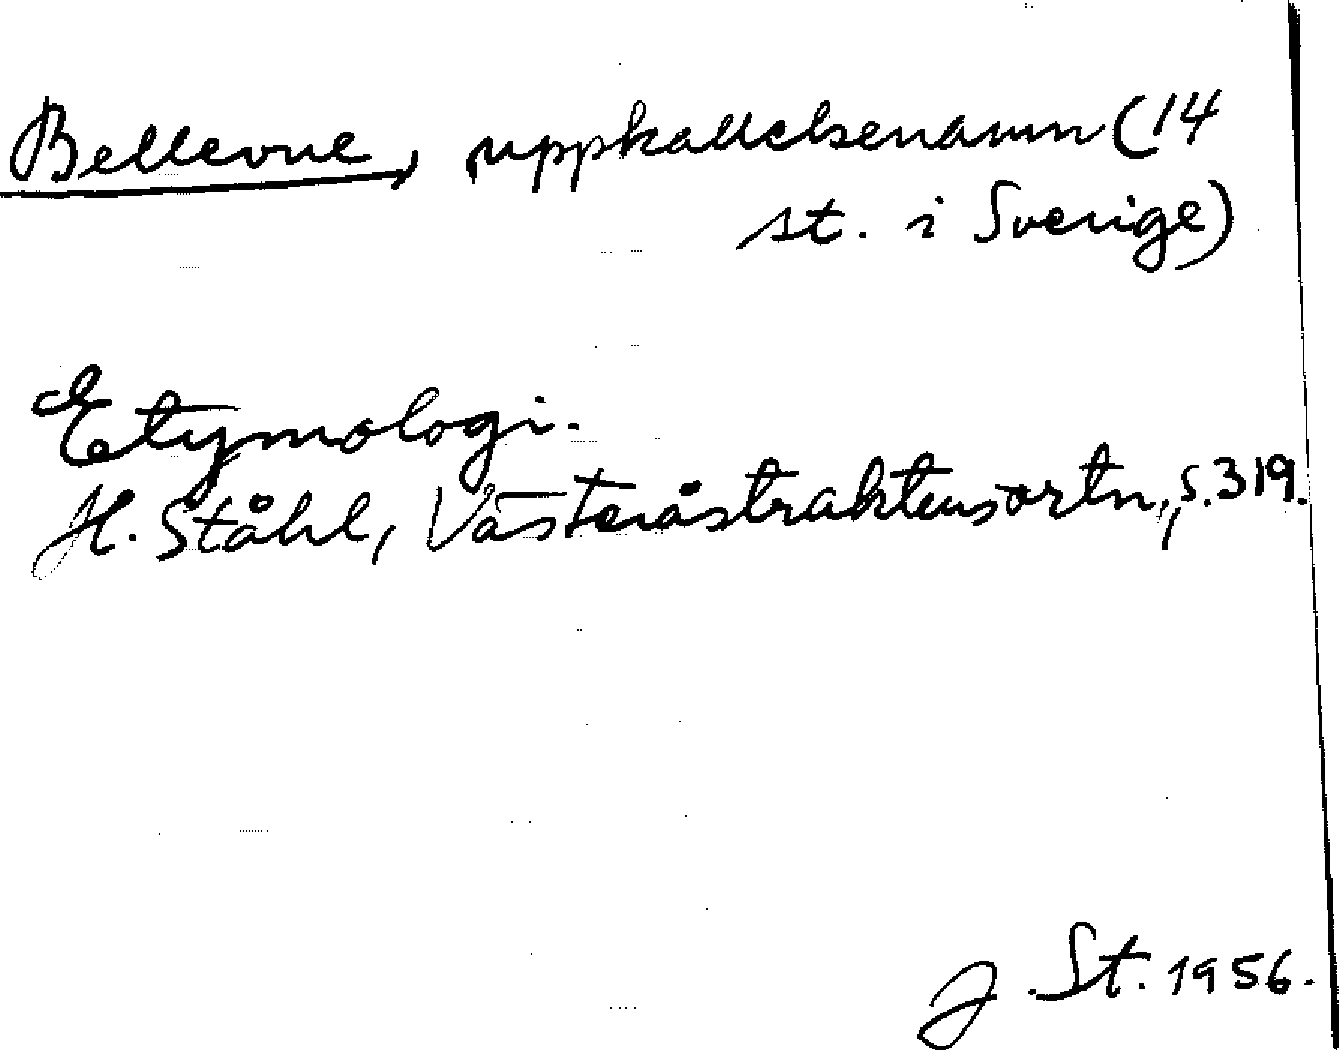 Bellevue, uppkallelsenamn (14
st. i Sverige)
Etymologi.
H. Ståhl, Västeråstraktens ortn., s. 319.
J. St. 1956.